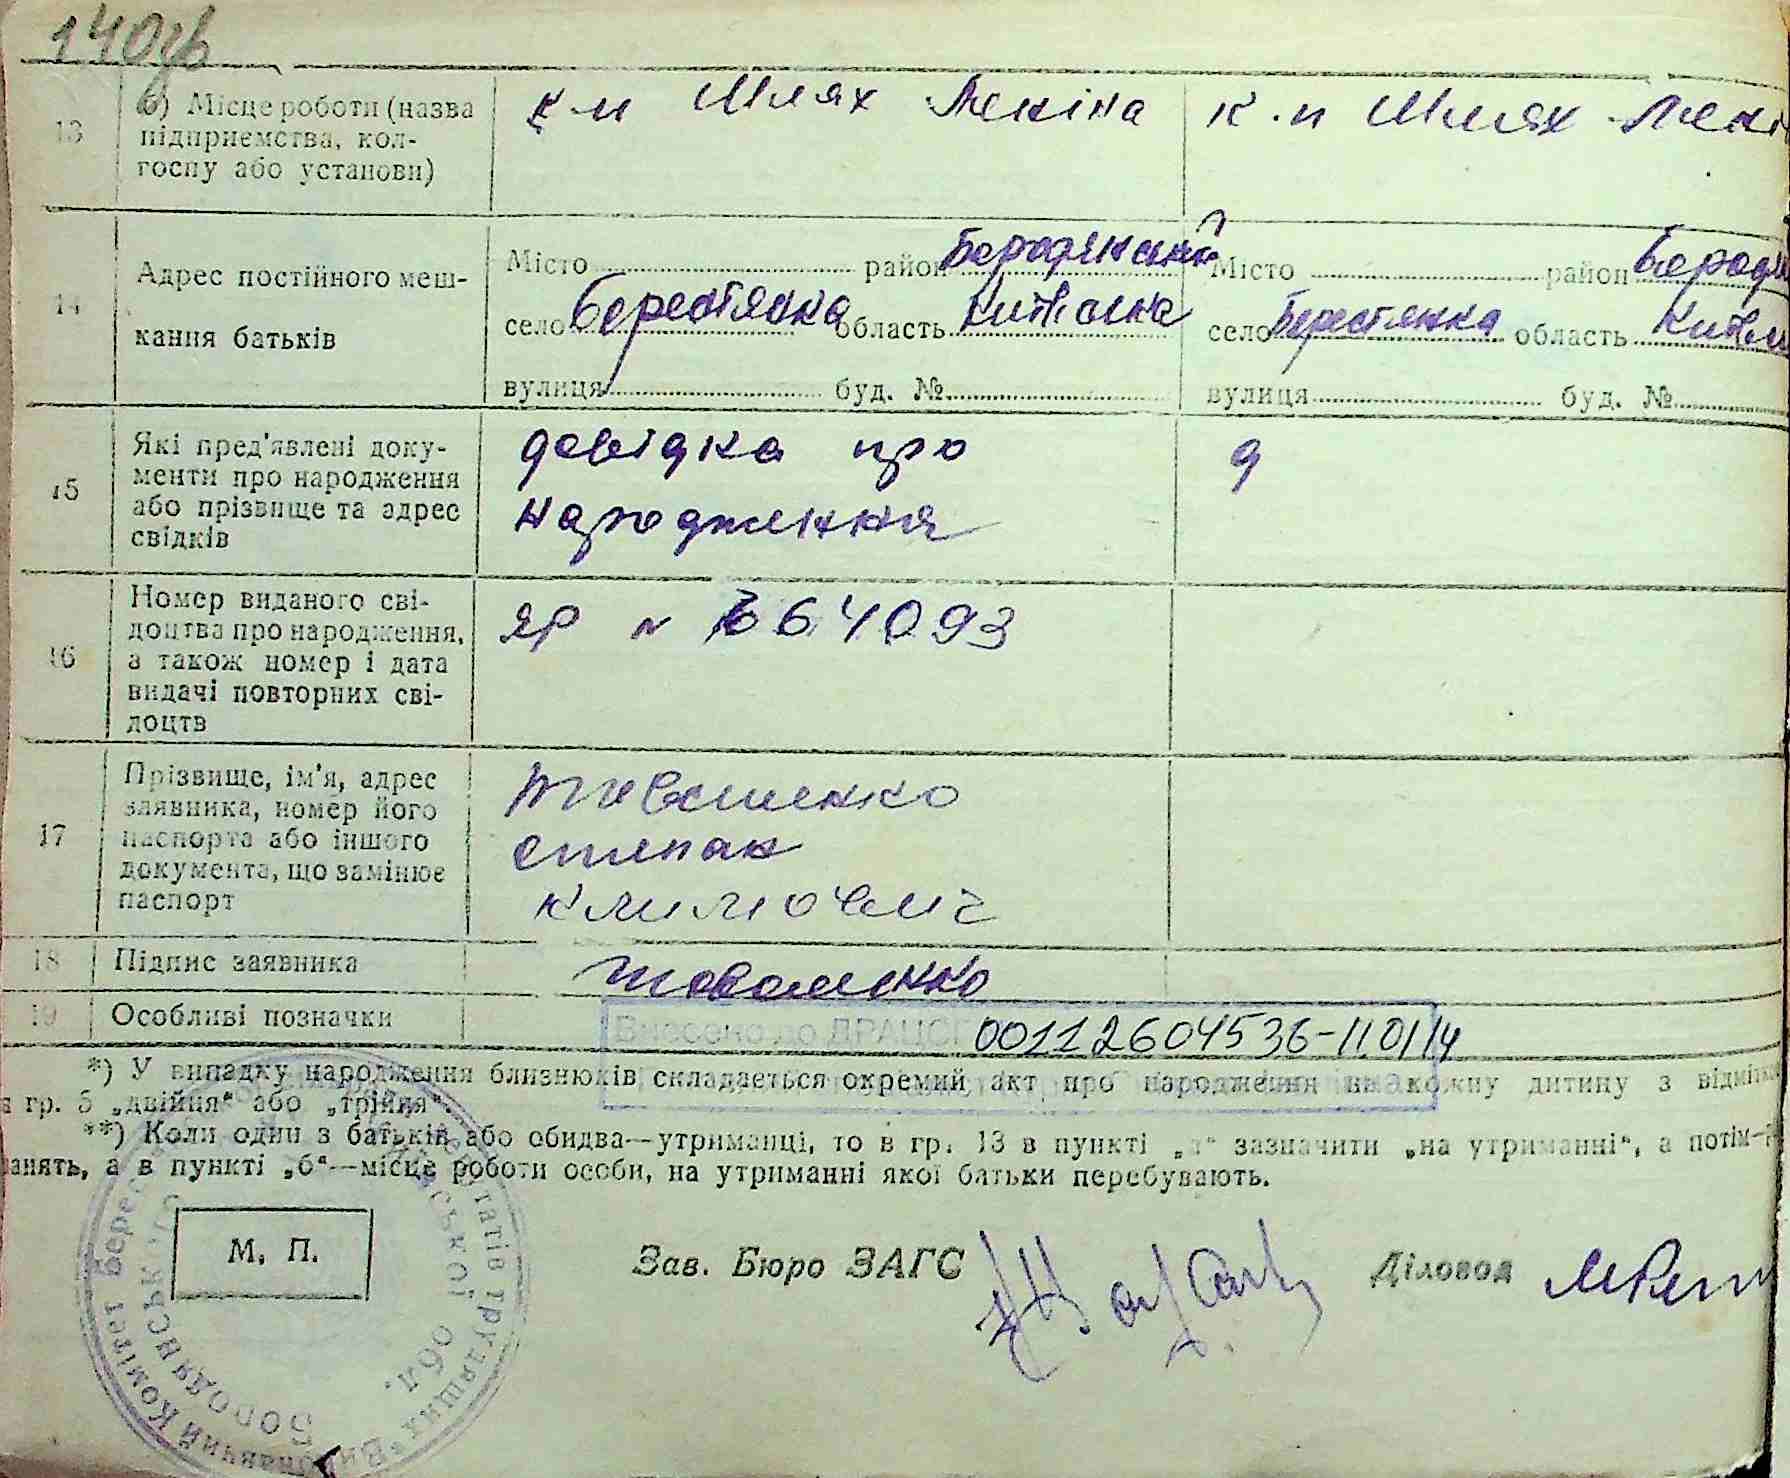 140зв
13 б) Місце роботи (назва підприємства, кол-госпу або установи)
к.п Шлях Леніна
к.п Шлях Лені
14 Адрес постійного меш-
кання батьків
Місто район Бородянський
село Берестянка область Київська
вулиця буд. №
Місто район Бород
село Берестянка область Київ
вулиця буд. №
15 Які пред'явлені доку-
менти про народження
або прізвище та адрес
свідків
довідка про
народження
16 Номер виданого сві-
доцтва про народження,
а також номер і дата
видачі повторних сві-
доцтв
ЯР № 664093
17 Прізвище, ім'я, адрес
заявника, номер його
паспорта або іншого
документа, що замінює
паспорт
Степан
Климович
18 Підпис заявника
19 Особливі позначки
Внесено до ДРАЦСГ 00112604536-11.01.14
*) У випадку народження близнюків складається окремий акт про народження на кожну дитину з відмітк
в гр. 5 „двійня“ або „трійня“.
**) Коли один з батьків або обидва—утриманці, то в гр. 13 в пункті „а“ зазначити „на утриманні“, а потім
занять, а в пункті „б“—місце роботи особи, на утриманні якої батьки перебувають.
М. П.
Зав. Бюро ЗАГС
Діловод